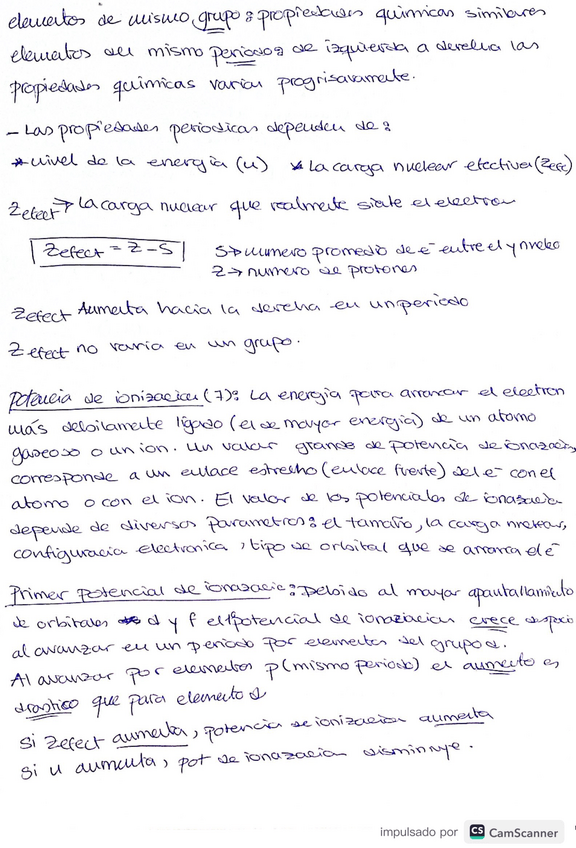 elementos de mismo grupo: propiedades quimicas similares
elementos del mismo periodo: de izquierda a derecha las
propiedades quimicas varian progrisavamente.
- Las propiedades periodicas dependen de:
* nivel de la energia (n) * La carga nuclear efectiva (Zefec)
Zefect → La carga nuclear que realmente siente el electron
Zefect = Z - S S → numero promedio de e⁻ entre el y nucleo
Z → numero de protones
Zefect Aumenta hacia la derecha en un periodo
Zefect no varia en un grupo.
Potencia de ionizacion (7): La energia para arrancar el electron
más debilmente ligado (el de mayor energia) de un atomo
gaseoso o un ion. Un valor grande de potencia de ionazacion
corresponde a un enlace estrecho (enlace fuerte) del e⁻ con el
atomo o con el ion. El valor de los potenciales de ionasacion
depende de diversos parametros: el tamaño, la carga nuclear,
configuracia electronica, tipo de orbital que se arranca el e⁻
Primer potencial de ionasacio: Debido al mayor apantallamiento
de orbitales d y f el 1ºpotencial de ionazacion crece
al avanzar en un periodo por elementos del grupo d.
Al avanzar por elementos p (mismo periodo) el aumento es
drastico que para elemento d
si Zefect aumenta, potencia de ionizacion aumenta
si n aumenta, pot de ionazacion disminuye.
impulsado por CS CamScanner